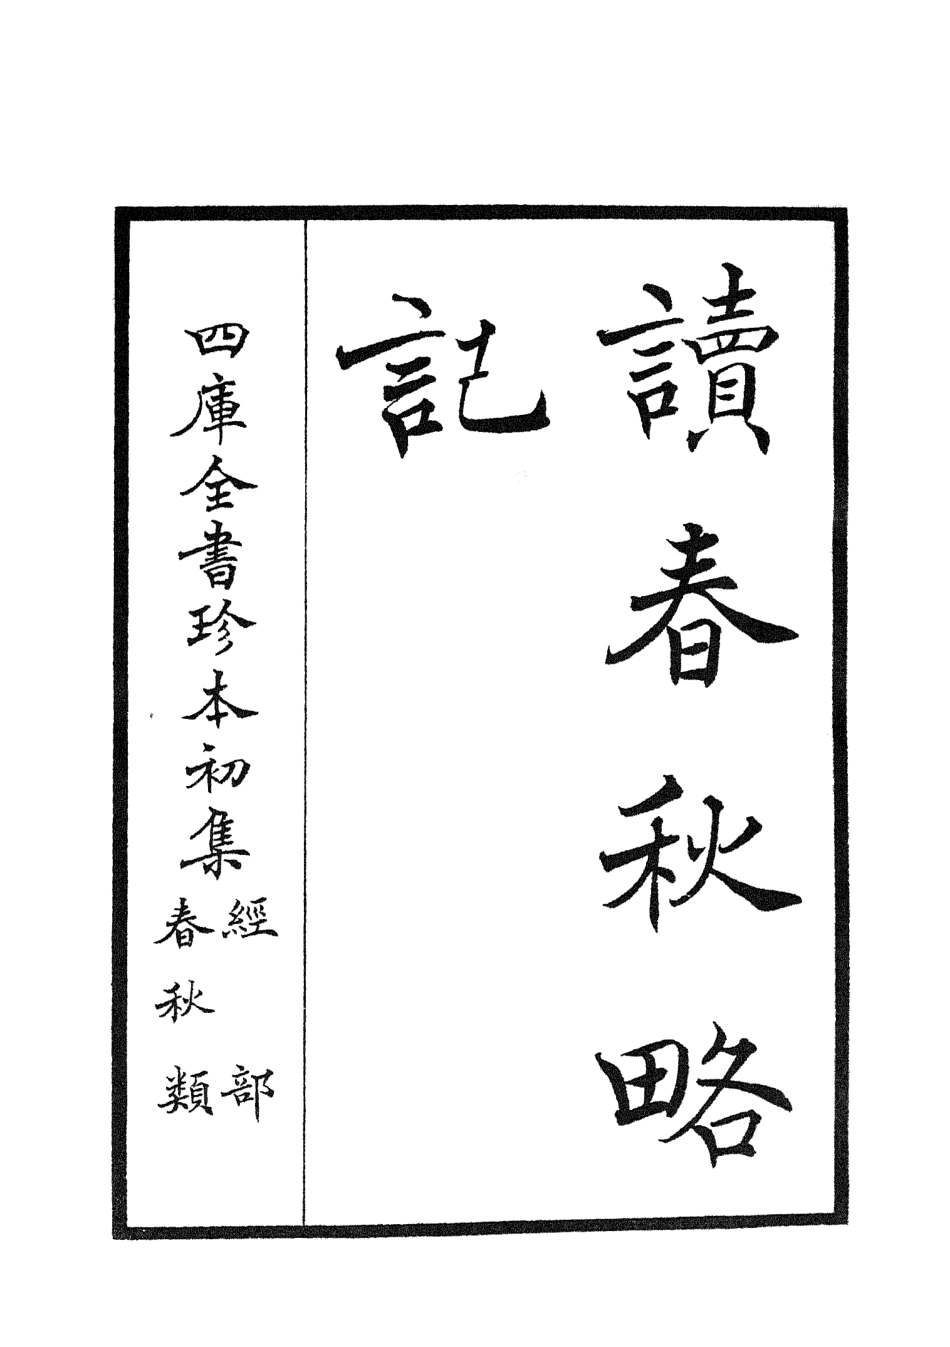 讀春秋略
記
四庫全書珍本初集
經部
春秋類